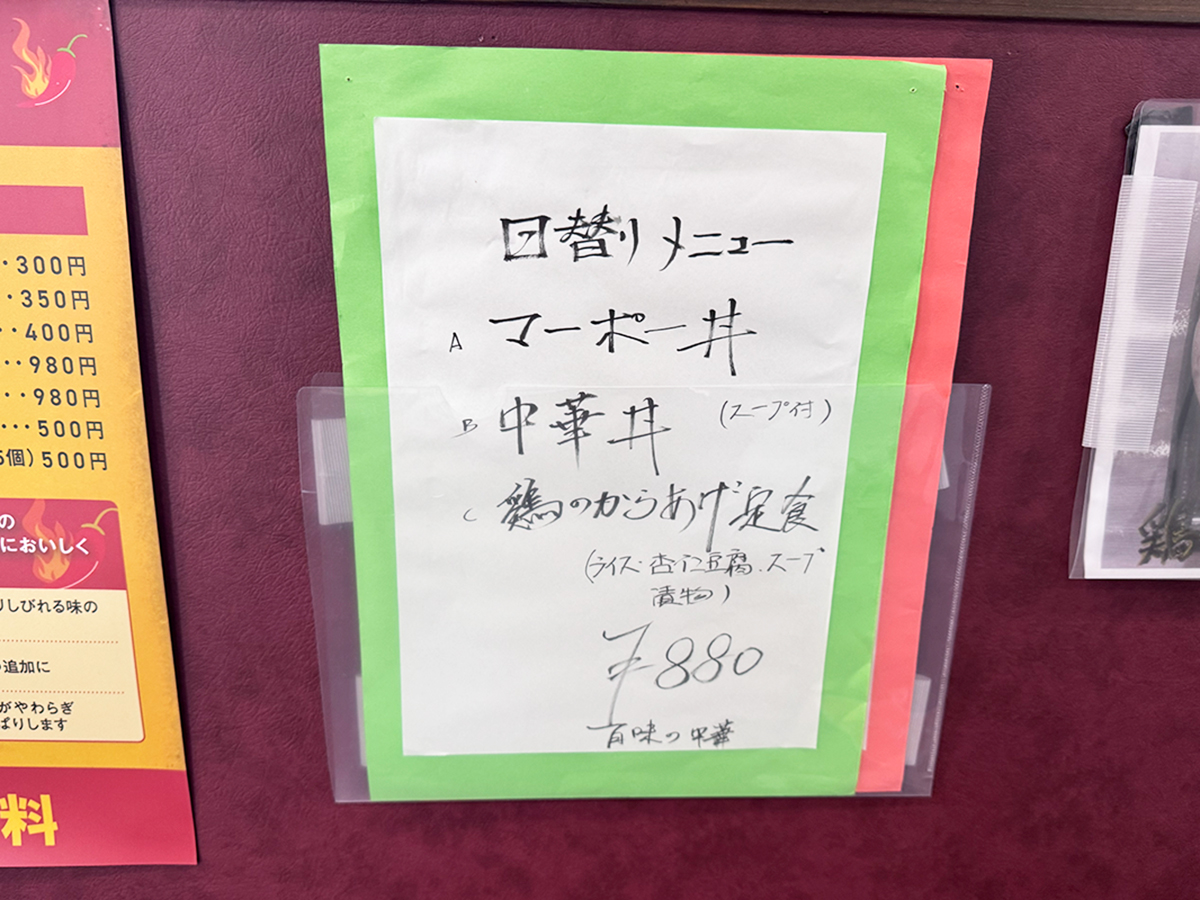 ･･300円
･･350円
･･400円
･･･980円
･･･980円
････500円
5個) 500円
の
においしく
りしびれる味の
追加に
がやわらぎ
ぱりします
料
日替り メニュー
A マーボー丼
B 中華丼 (スープ付)
C 鶏のからあげ定食
(ライス・杏仁豆腐、スープ
漬物)
¥880
百味の中華
鶏